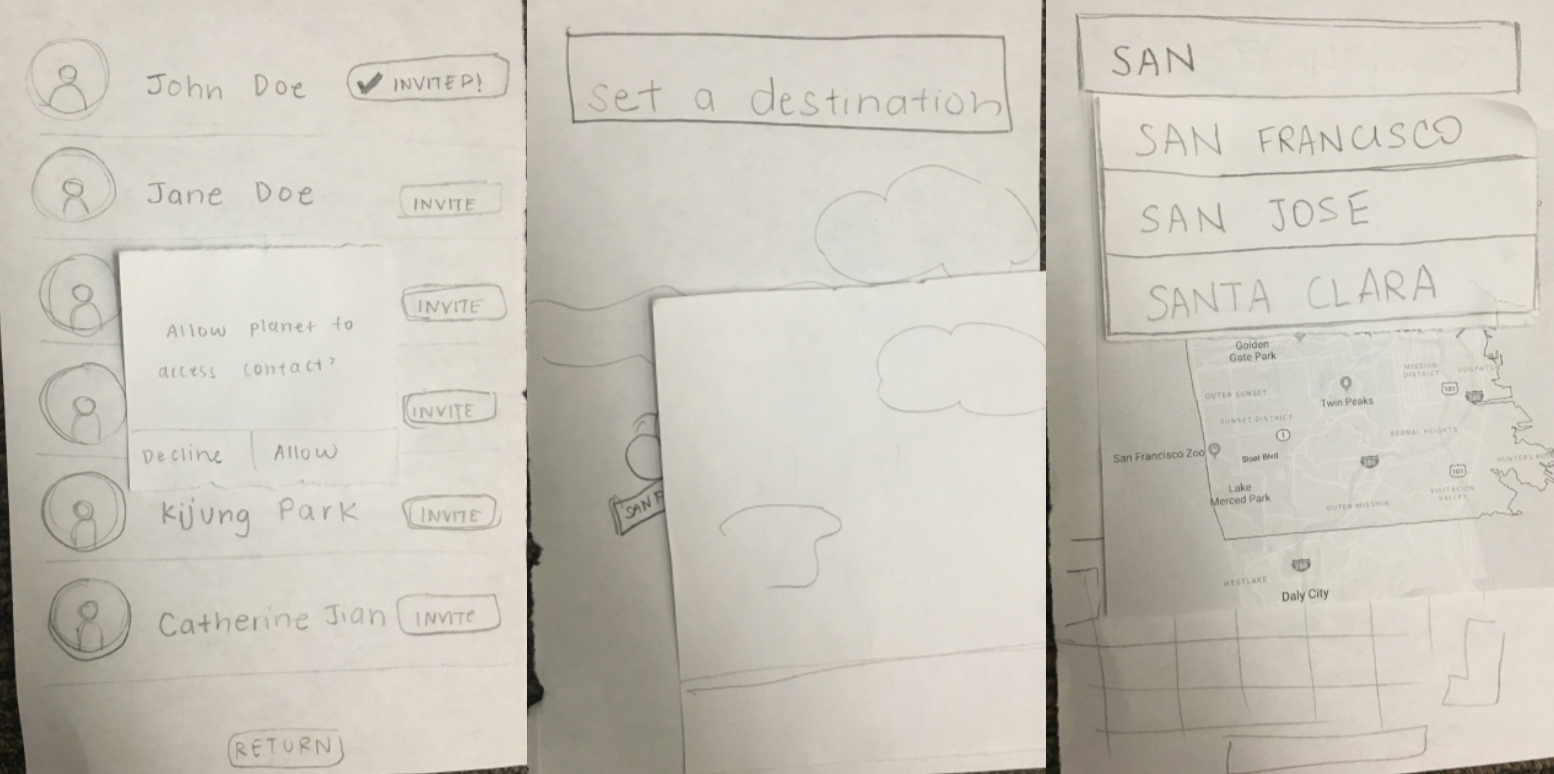 John Doe
✔ INVITED!
Jane Doe
INVITE
INVITE
Allow planet to
access contact?
Decline
Allow
INVITE
Kijung Park
INVITE
Catherine Jian
INVITE
RETURN
set a destination
SAN F
SAN
SAN FRANCISCO
SAN JOSE
SANTA CLARA
Golden
Gate Park
MISSION
DISTRICT
DOGPATC
OUTER SUNSET
101
280
Twin Peaks
SUNSET DISTRICT
1
BERNAL HEIGHTS
San Francisco Zoo
Sloat Blvd
280
101
HUNTERS POI
Lake
Merced Park
VISITACION
VALLEY
OUTER MISSION
WESTLAKE
280
Daly City